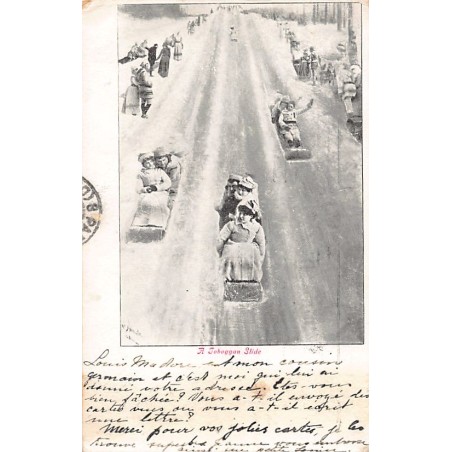 A Toboggan Slide
Louis Madore est mon cousin
germain et c'est moi qui lui ai
donné votre adresse. Êtes-vous
bien fâchée? Vous a-t-il envoyé des
cartes vues ou vous a-t-il écrit
une lettre?
Merci pour vos jolies cartes, je les
trouve